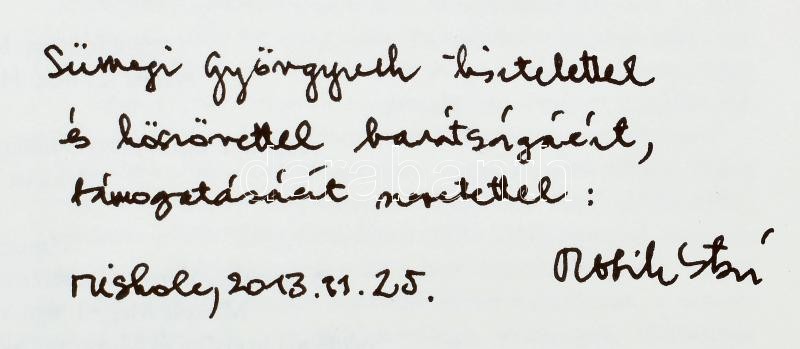 Sümegi Györgynek tisztelettel
és köszönettel barátságáért,
támogatásáért szeretettel:
Miskolc, 2013.11.25.
darabanth